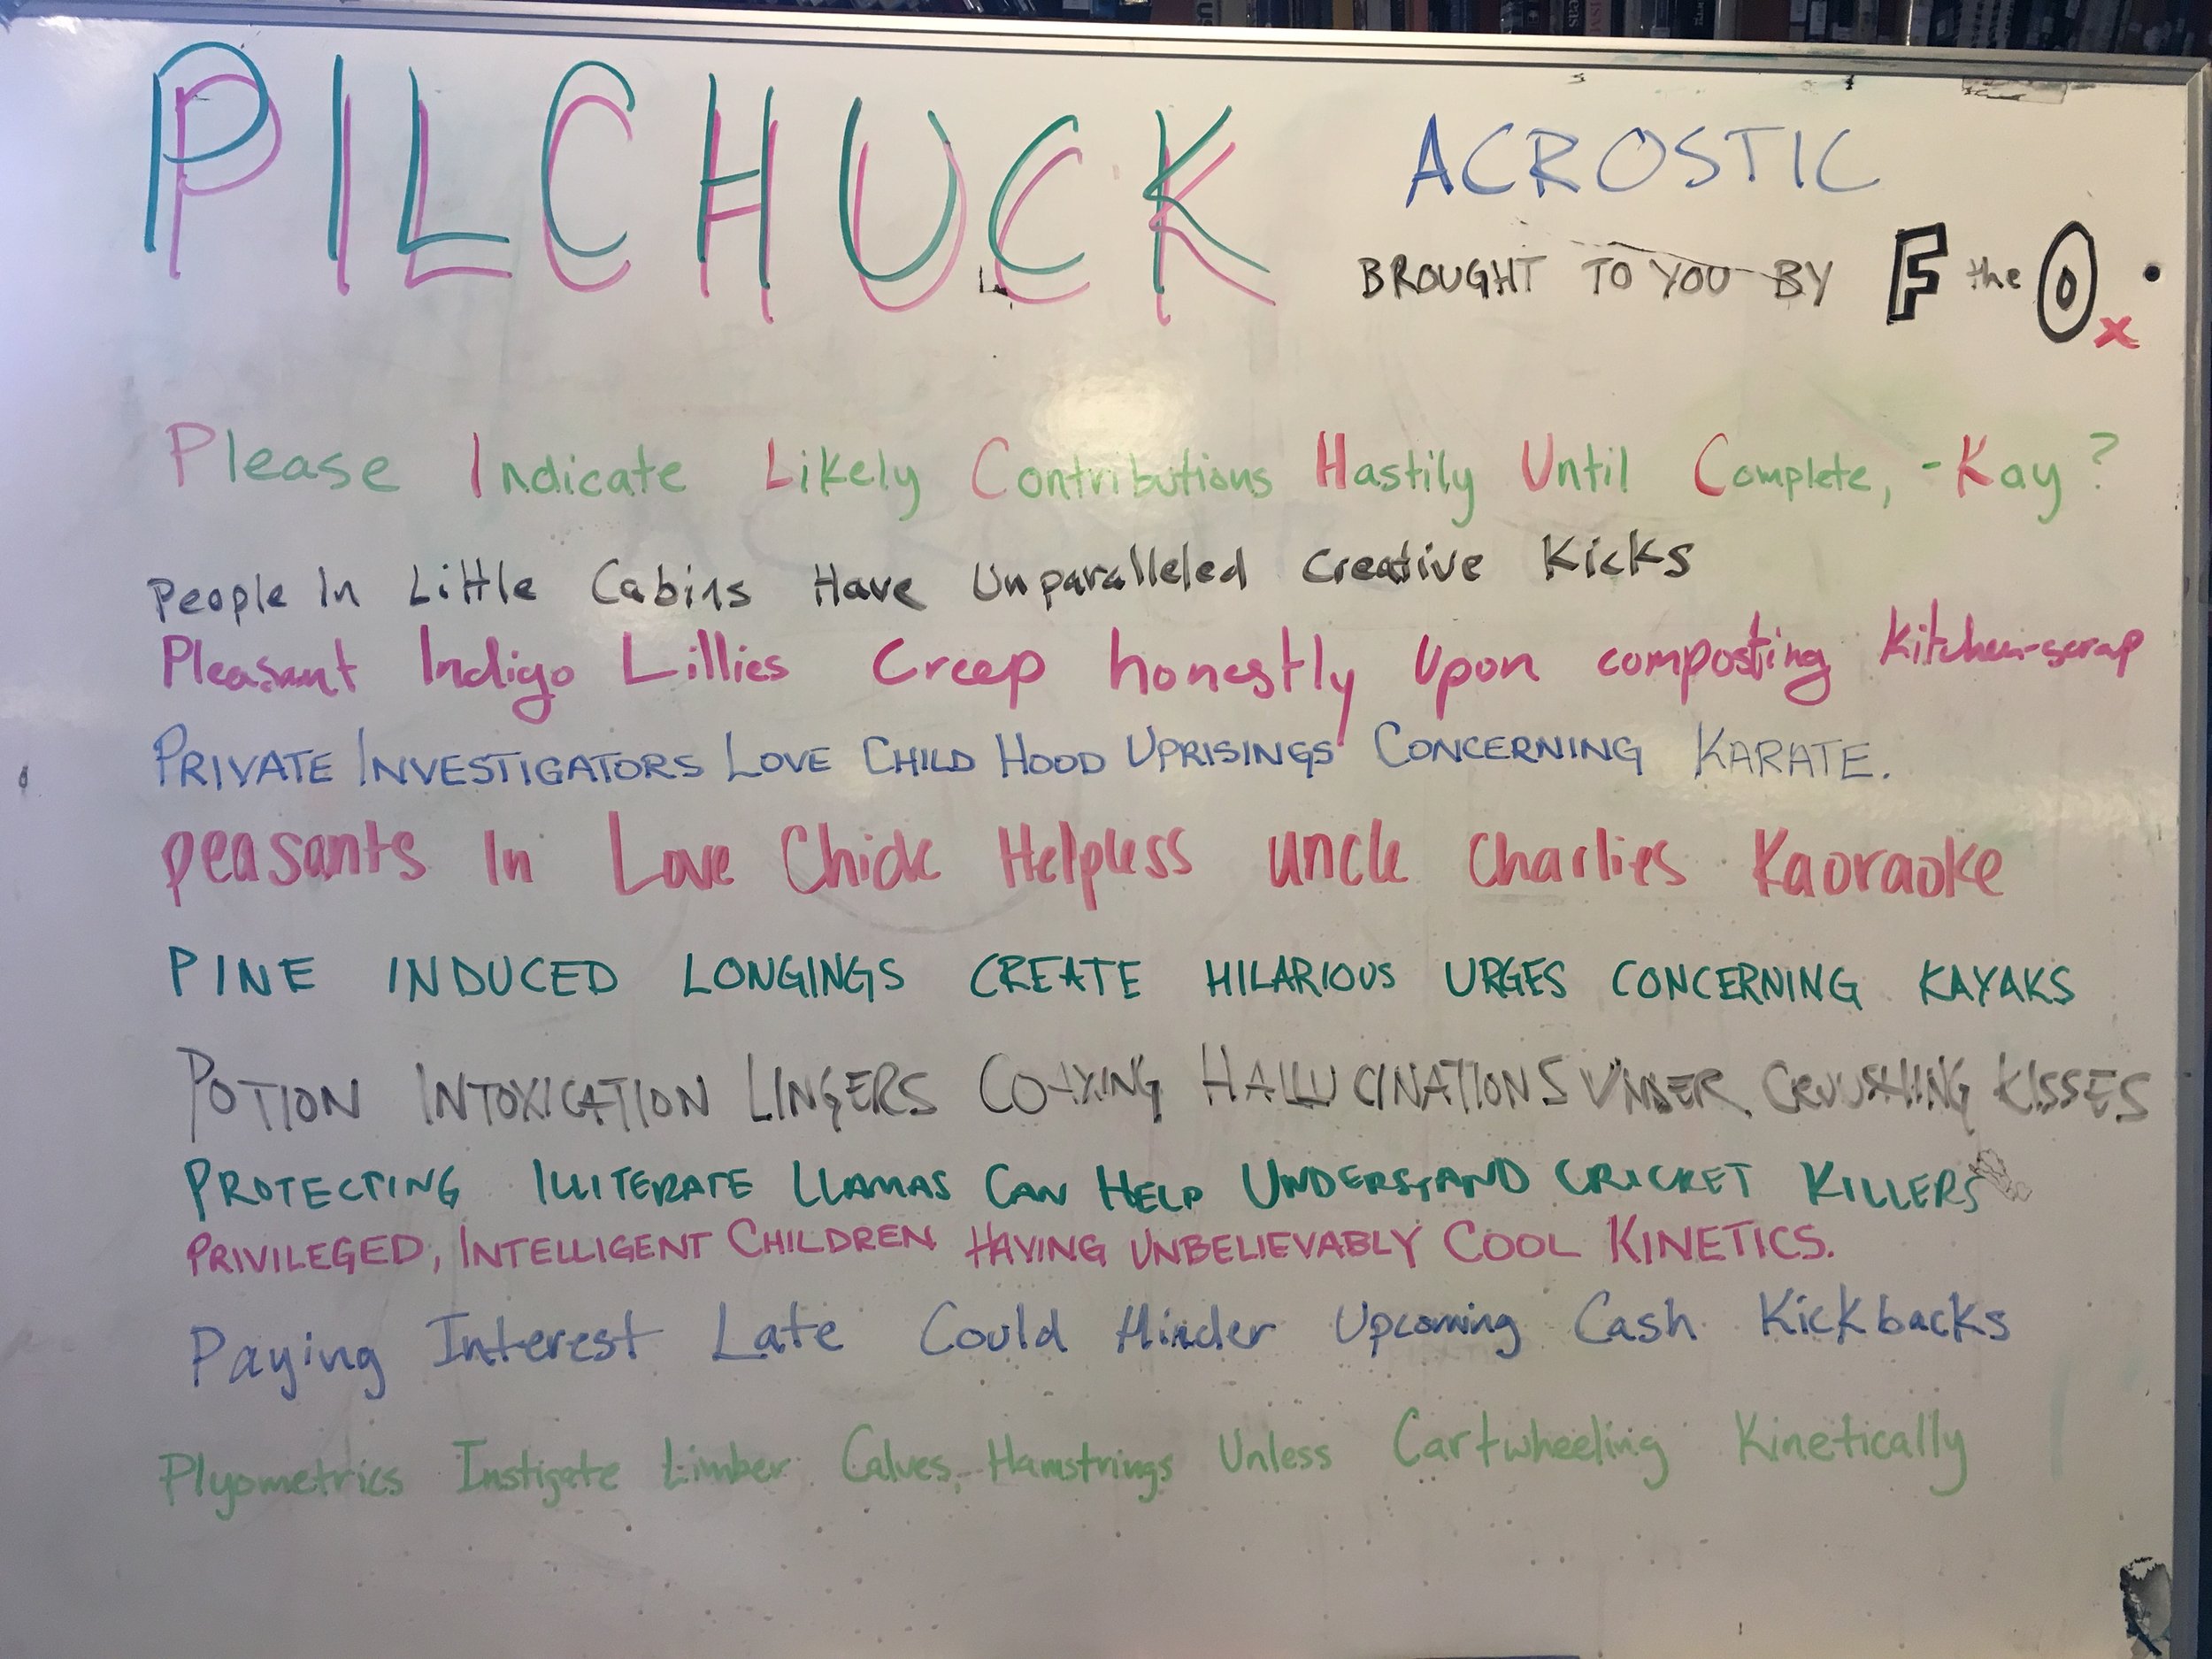 PILCHUCK ACROSTIC
BROUGHT TO YOU BY F the O x .
Please Indicate Likely Contributions Hastily Until Complete, -Kay?
People In Little Cabins Have Unparalleled Creative Kicks
Pleasant Indigo Lillies Creep honestly Upon composting Kitchen-scrap
PRIVATE INVESTIGATORS LOVE CHILD HOOD UPRISINGS CONCERNING KARATE.
peasants In Love Chide Helpless uncle Charlies Kaoraoke
PINE INDUCED LONGINGS CREATE HILARIOUS URGES CONCERNING KAYAKS
POTION INTOXICATION LINGERS COAXING HALLUCINATIONS UNDER CRUSHING KISSES
PROTECTING ILLITERATE LLAMAS CAN HELP UNDERSTAND CRICKET KILLERS
PRIVILEGED, INTELLIGENT CHILDREN HAVING UNBELIEVABLY COOL KINETICS.
Paying Interest Late Could Hinder Upcoming Cash Kickbacks
Plyometrics Instigate Limber Calves, Hamstrings Unless Cartwheeling Kinetically